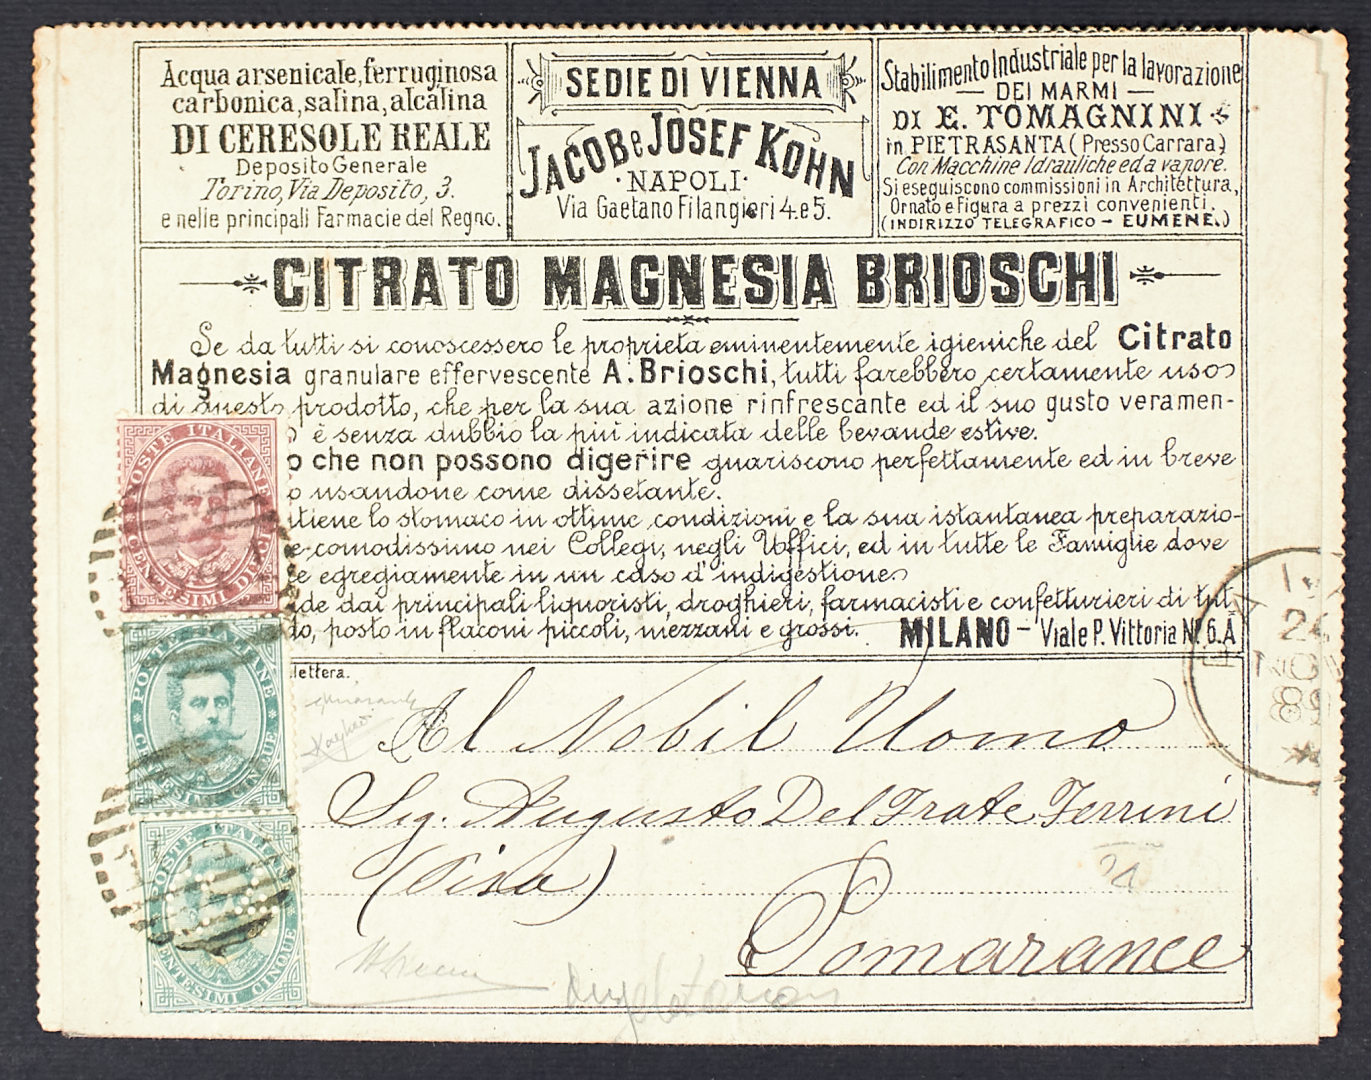 Acqua arsenicale, ferruginosa
carbonica, salina, alcalina
DI CERESOLE REALE
Deposito Generale
Torino, Via Deposito, 3.
e nelle principali Farmacie del Regno.
SEDIE DI VIENNA
JACOB e JOSEF KOHN
· NAPOLI ·
Via Gaetano Filangieri 4. e 5.
Stabilimento Industriale per la lavorazione
— DEI MARMI —
DI E. TOMAGNINI
in PIETRASANTA (Presso Carrara)
Con Macchine Idrauliche ed a vapore.
Si eseguiscono commissioni in Architettura,
Ornato e Figura a prezzi convenienti.
(INDIRIZZO TELEGRAFICO – EUMENE.)
CITRATO MAGNESIA BRIOSCHI
Se da tutti si conoscessero le proprietà eminentemente igieniche del Citrato
Magnesia granulare effervescente A. Brioschi, tutti farebbero certamente uso
di questo prodotto, che per la sua azione rinfrescante ed il suo gusto veramen-
è senza dubbio la più indicata delle bevande estive.
o che non possono digerire guariscono perfettamente ed in breve
o usandone come dissetante.
tiene lo stomaco in ottime condizioni e la sua istantanea preparazio-
e comodissimo nei Collegi, negli Uffici, ed in tutte le Famiglie dove
e egregiamente in un caso d'indigestione
de dai principali liquoristi, droghieri, farmacisti e confetturieri di tut-
to, posto in flaconi piccoli, mezzani e grossi. MILANO – Viale P. Vittoria Nº 6. A
lettera.
POSTE ITALIANE
CENTESIMI DIECI
POSTE ITALIANE
CENTESIMI CINQUE
POSTE ITALIANE
CENTESIMI CINQUE
24
NOV
89
Al Nobil Uomo
Sig. Augusto Del Frate Ferrini
(Pisa)
21
Pomarance